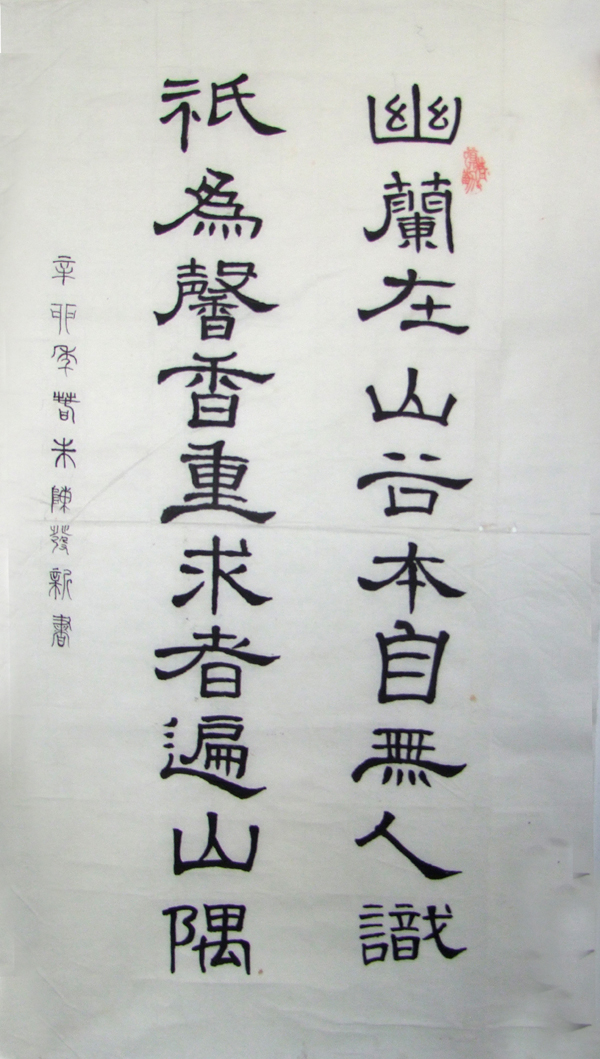 幽蘭在山谷本自無人識
祇為馨香重求者遍山隅
辛卯季春末陳發新書